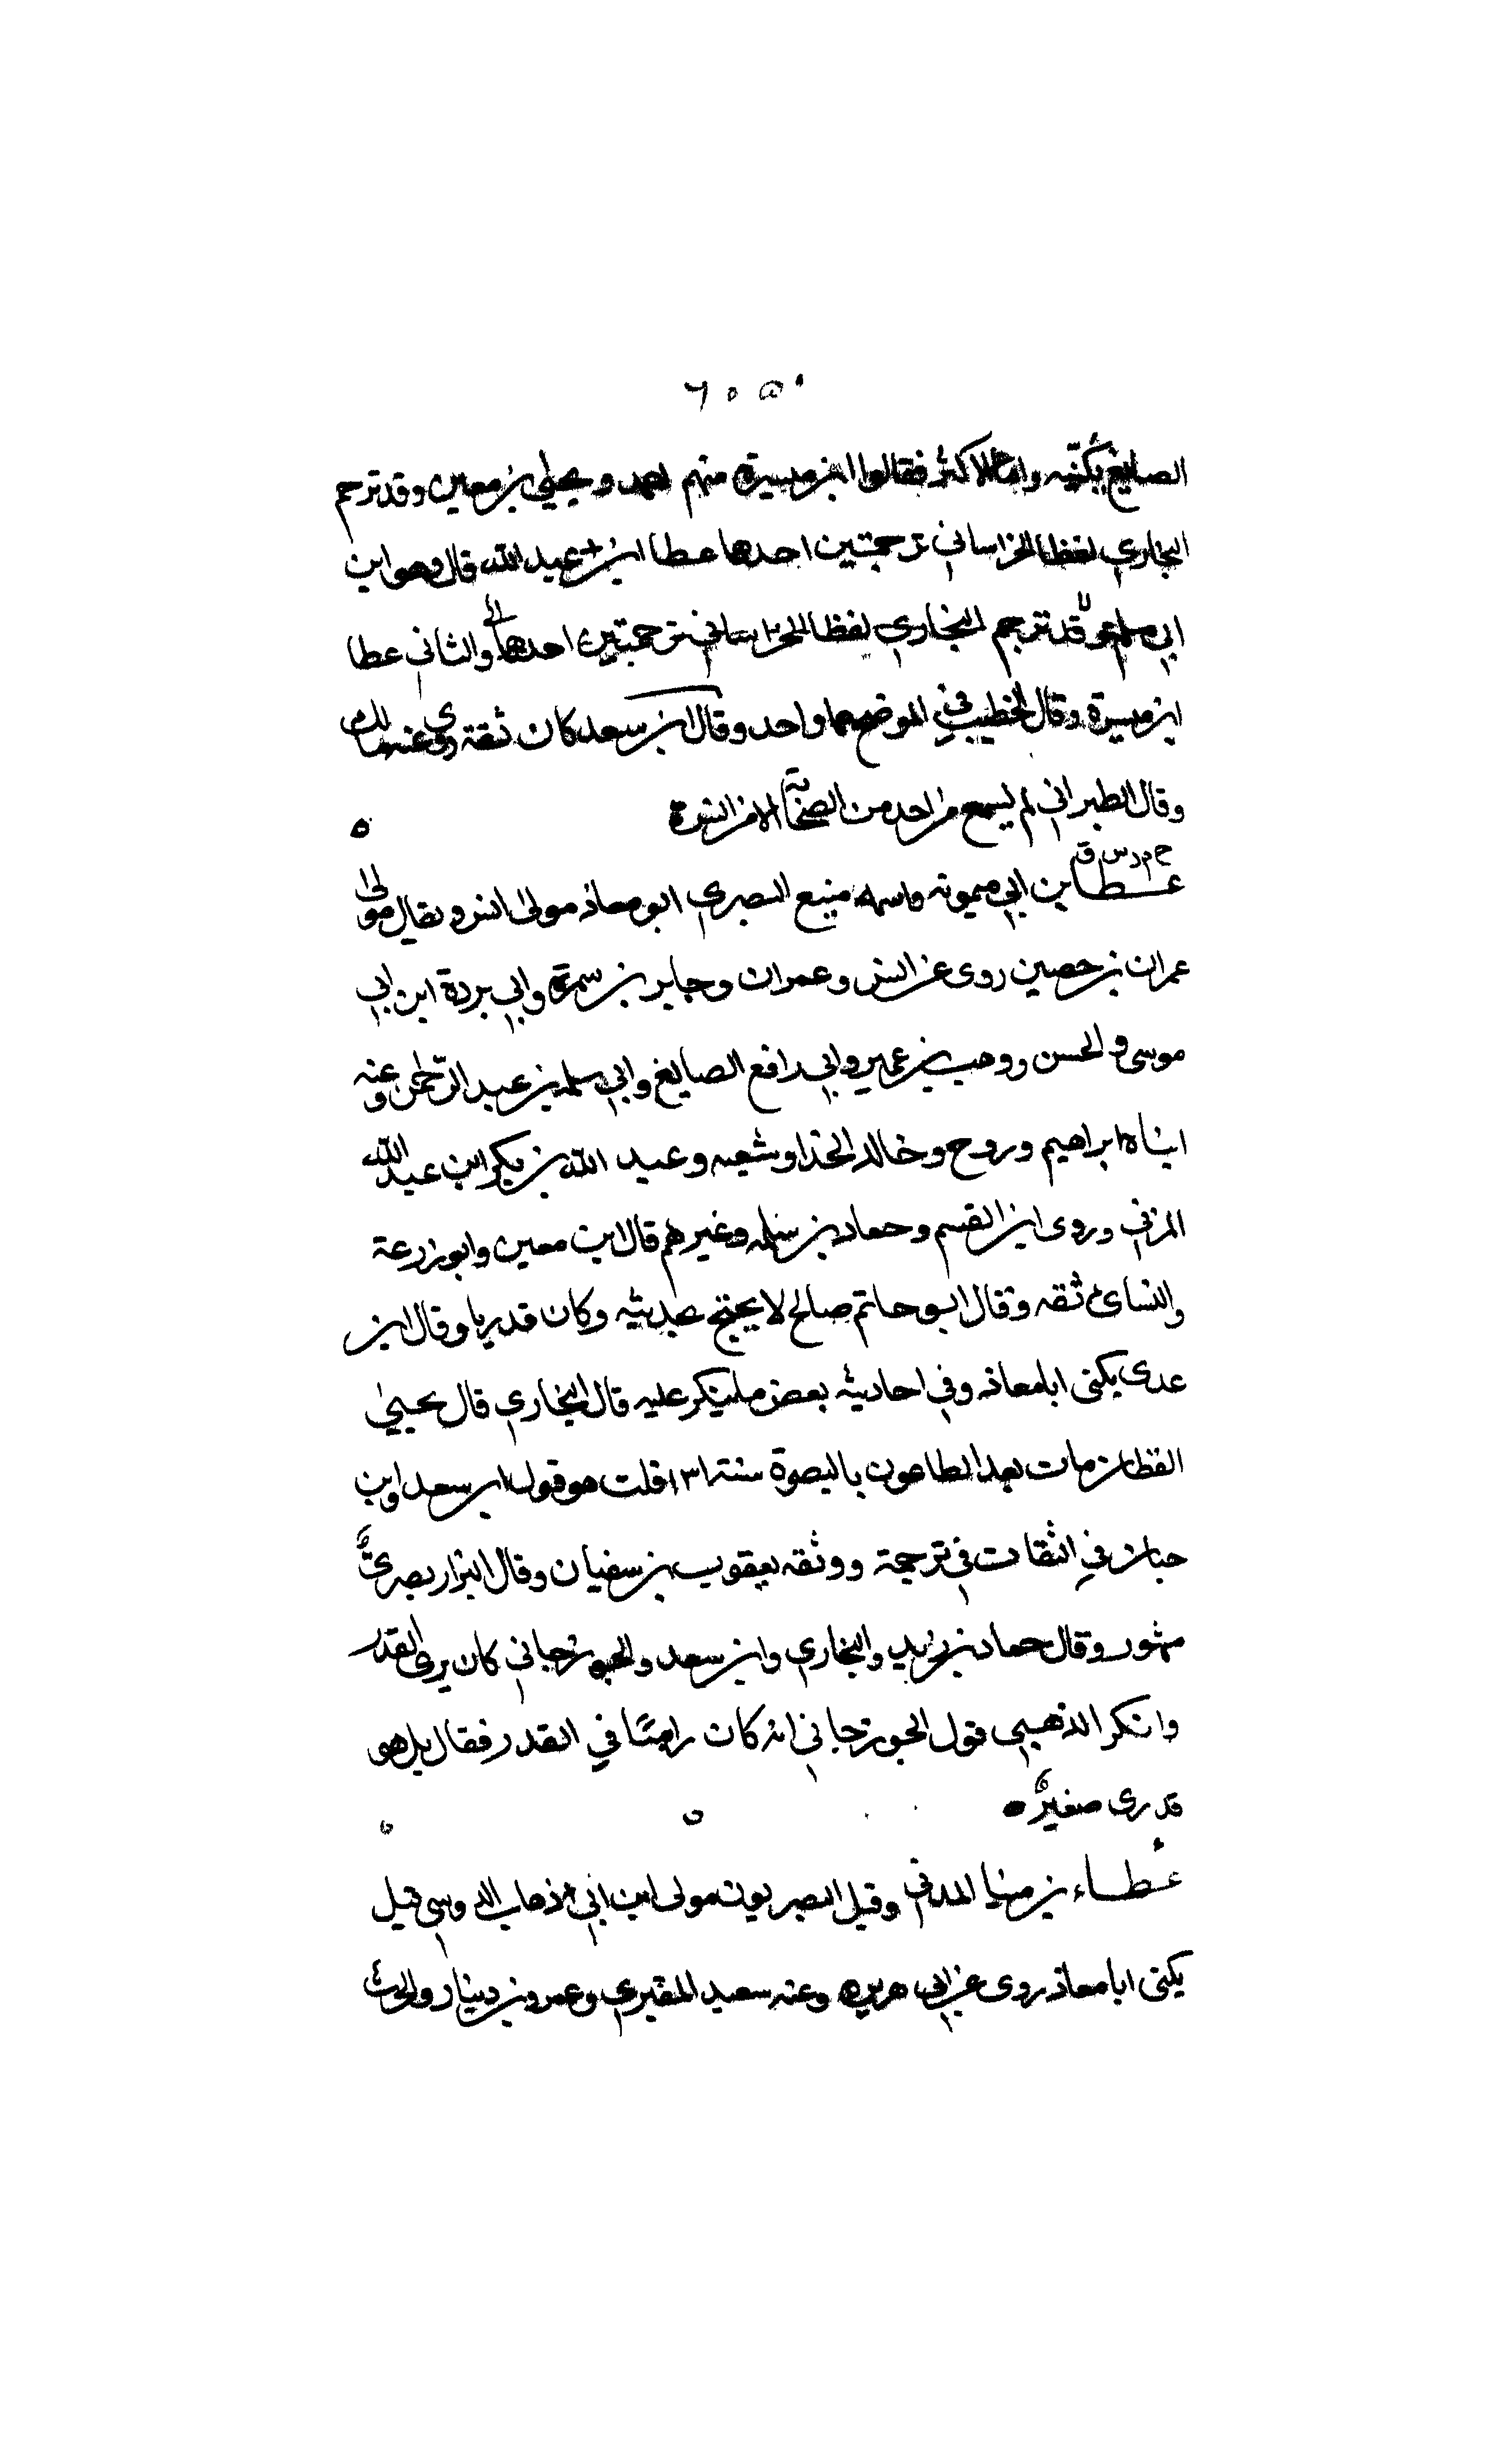 ٦٠٥
الصايغ بكنيه واما الاكثر فقالوا ابن ميسرة منهم احمد ويحيى بن معين وقد ترجم
البخاري لعطا الخراساني ترجمتين احدهما عطا ابن عبد الله قال وهو ابن
ابي مسلم وقد ترجم البخاري لعطا الخراساني ترجمتين احدهما والثاني عطا
ابن ميسرة وقال الخطيب في الموضح هما واحد وقال ابن سعد كان ثقة روى عنه مالك
وقال الطبراني لم يسمع من احد من الصحابة الا من انس
خ م د س ق
عطا بن ابي ميمونه واسمه منيع البصري ابو معاذ مولى انس ويقال مولى
عمران بن حصين روى عن انس وعمران وجابر بن سمرة وابي بردة ابن ابي
موسى والحسن ووهب بن عمير وابي رافع الصايغ وابي سلمه بن عبد الرحمن وعنه
ابناه ابراهيم وروح وخالد الحذا وشعبه وعبد الله بن بكر ابن عبد الله
المزني وروى ابن القسم وحماد بن سلمه وغيرهم قال ابن معين وابو زرعة
والنسائ ثقه وقال ابو حاتم صالح لا يحتج بحديثه وكان قدريا وقال ابن
عدى يكنى ابا معاذ وفي احاديثه بعض ما ينكر عليه قال البخاري قال يحيى
القطان مات بعد الطاعون بالبصرة سنة ١٣١ قلت هو قول ابن سعد وابن
حبان في الثقات في ترجمة ووثقه يعقوب بن سفيان وقال البزار بصرى
مشهور وقال حماد بن زيد والبخاري وابن سعد والجوزجاني كان يرى القدر
وانكر الذهبي قول الجوزجاني انه كان راسا في القدر فقال بل هو
قدرى صغير
عطاء بن مينا المدني وقيل البصريون مولى ابن ابي ذهاب الدوسي قيل
يكنى ابا معاذ روى عن ابي هريره وعنه سعيد المقبري وعمرو بن دينار والحرث